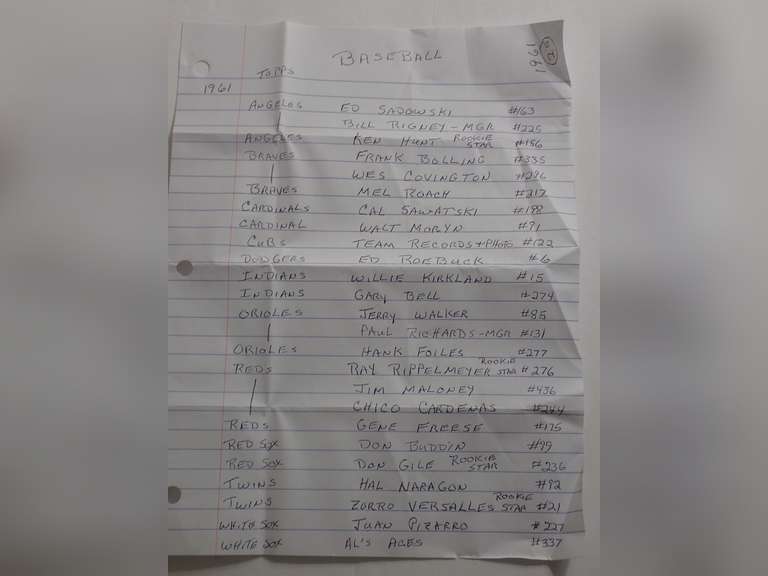 BASEBALL
1961
TOPPS
1961
ANGELOS ED SADOWSKI #163
BILL RIGNEY - MGR #225
ANGELES KEN HUNT ROOKIE STAR #156
BRAVES FRANK BOLLING #335
WES COVINGTON #296
BRAVES MEL ROACH #217
CARDINALS CAL SAWATSKI #198
CARDINAL WALT MORYN #91
CUBS TEAM RECORDS + PHOTO #122
DODGERS ED ROEBUCK #6
INDIANS WILLIE KIRKLAND #15
INDIANS GARY BELL #274
ORIOLES JERRY WALKER #85
PAUL RICHARDS - MGR #131
ORIOLES HANK FOILES #277
REDS RAY RIPPELMEYER ROOKIE STAR #276
JIM MALONEY #436
CHICO CARDENAS #244
REDS GENE FREESE #175
RED SOX DON BUDDIN #99
RED SOX DON GILE ROOKIE STAR #236
TWINS HAL NARAGON #92
TWINS ZORRO VERSALLES ROOKIE STAR #21
WHITE SOX JUAN PIZARRO #227
WHITE SOX AL'S ACES #337